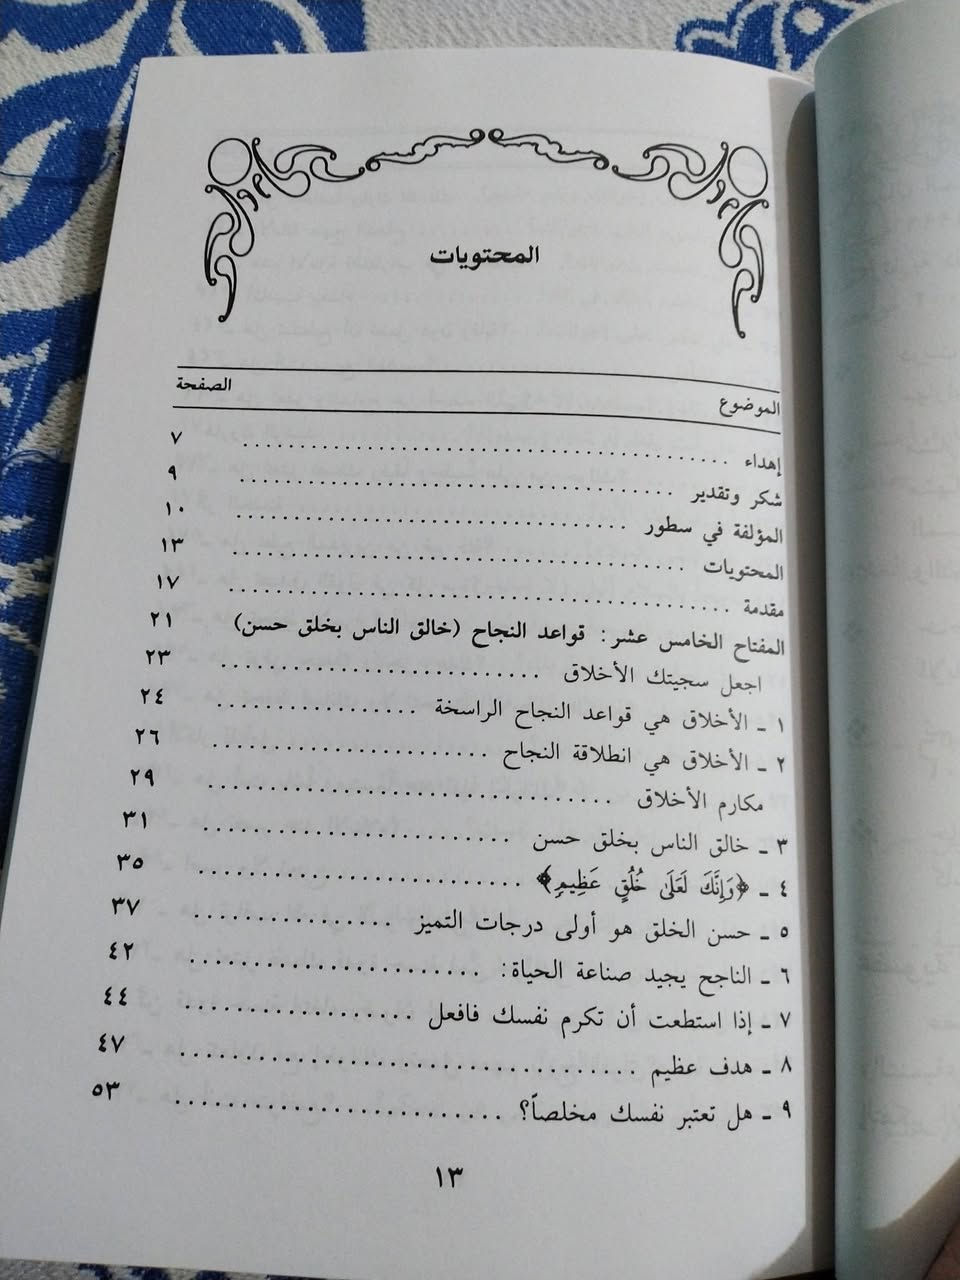 المحتويات
الموضوع الصفحة
إهداء ٧
شكر وتقدير ٩
المؤلفة في سطور ١٠
المحتويات ١٣
مقدمة ١٧
المفتاح الخامس عشر: قواعد النجاح (خالق الناس بخلق حسن) ٢١
اجعل سجيتك الأخلاق ٢٣
١ ـ الأخلاق هي قواعد النجاح الراسخة ٢٤
٢ ـ الأخلاق هي انطلاقة النجاح ٢٦
مكارم الأخلاق ٢٩
٣ ـ خالق الناس بخلق حسن ٣١
٤ ـ ﴿وَإِنَّكَ لَعَلَىٰ خُلُقٍ عَظِيمٍ﴾ ٣٥
٥ ـ حسن الخلق هو أولى درجات التميز ٣٧
٦ ـ الناجح يجيد صناعة الحياة: ٤٢
٧ ـ إذا استطعت أن تكرم نفسك فافعل ٤٤
٨ ـ هدف عظيم ٤٧
٩ ـ هل تعتبر نفسك مخلصاً؟ ٥٣
١٣